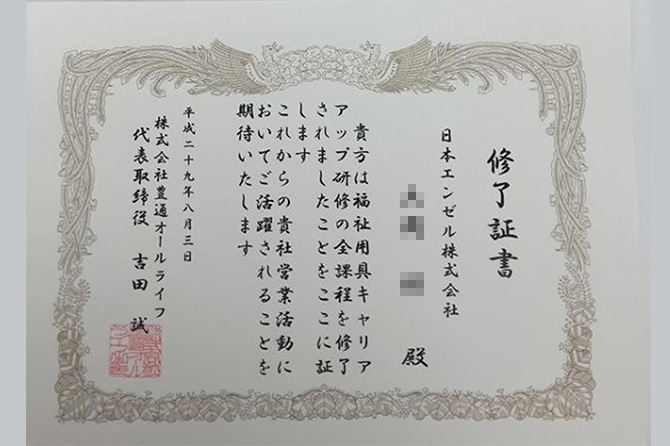 修了証書
日本エンゼル株式会社
殿
貴方は福祉用具キャリア
アップ研修の全課程を修了
されましたことをここに証
します
これからの貴社営業活動に
おいてご活躍されることを
期待いたします
平成二十九年八月三日
株式会社豊通オールライフ
代表取締役 吉田 誠